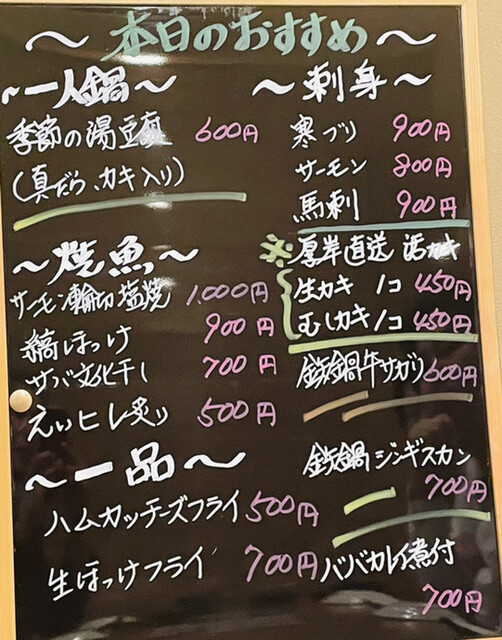 ～本日のおすすめ～
～一人鍋～
季節の湯豆腐 600円
(真だら、カキ入り)
～焼魚～
サーモン輪切塩焼 1,000円
縞ほっけ 900円
サバ文化干し 700円
えいヒレ炙り 500円
～一品～
ハムカッチーズフライ 500円
生ほっけフライ 700円
～刺身～
寒ブリ 900円
サーモン 800円
馬刺 900円
※厚岸直送 活カキ
生カキ 1コ 450円
むしカキ 1コ 450円
鉄鍋牛サガリ 600円
鉄鍋ジンギスカン
700円
ババカレイ煮付
700円